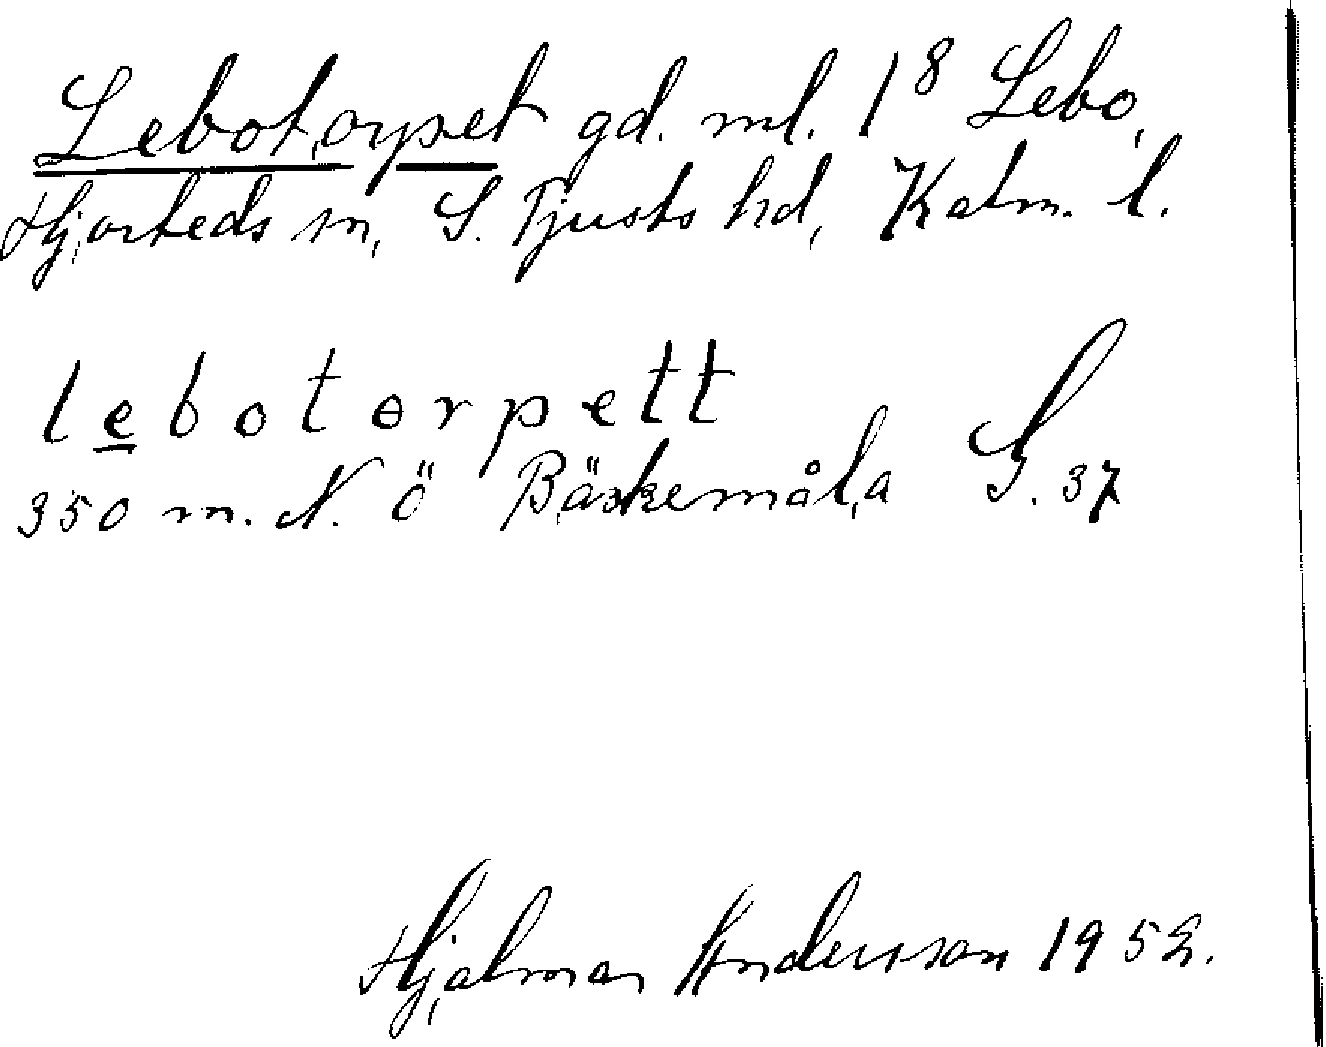 Lebotorpet gd. ml. 1⁸ Lebo,
Hjorteds sn, S. Tjusts hd, Kalm. l.
lebotørpett
350 m. N. ö Bäskemåla S. 37
Hjalmar Andersson 1952.